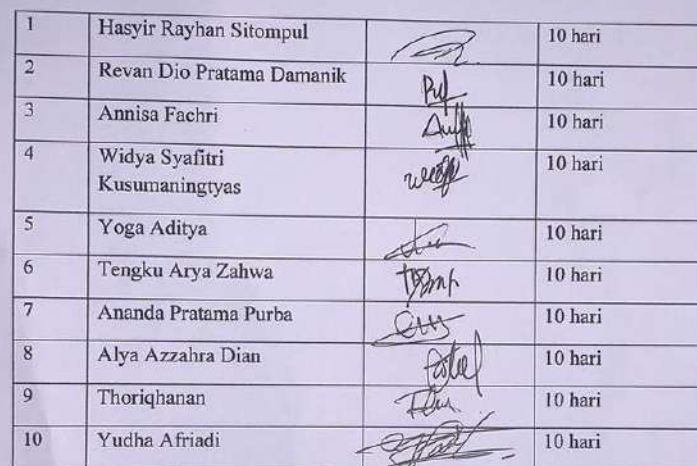 1 Hasyir Rayhan Sitompul 10 hari
2 Revan Dio Pratama Damanik 10 hari
3 Annisa Fachri 10 hari
4 Widya Syafitri 10 hari
Kusumaningtyas
5 Yoga Aditya 10 hari
6 Tengku Arya Zahwa 10 hari
7 Ananda Pratama Purba 10 hari
8 Alya Azzahra Dian 10 hari
9 Thoriqhanan 10 hari
10 Yudha Afriadi 10 hari